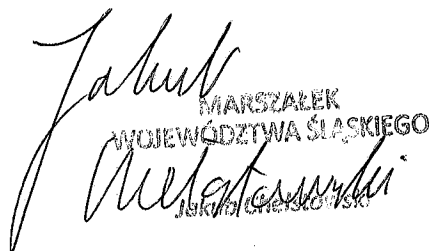 Jakub
MARSZAŁEK
WOJEWÓDZTWA ŚLĄSKIEGO
Chełstowski
Jakub Chełstowski